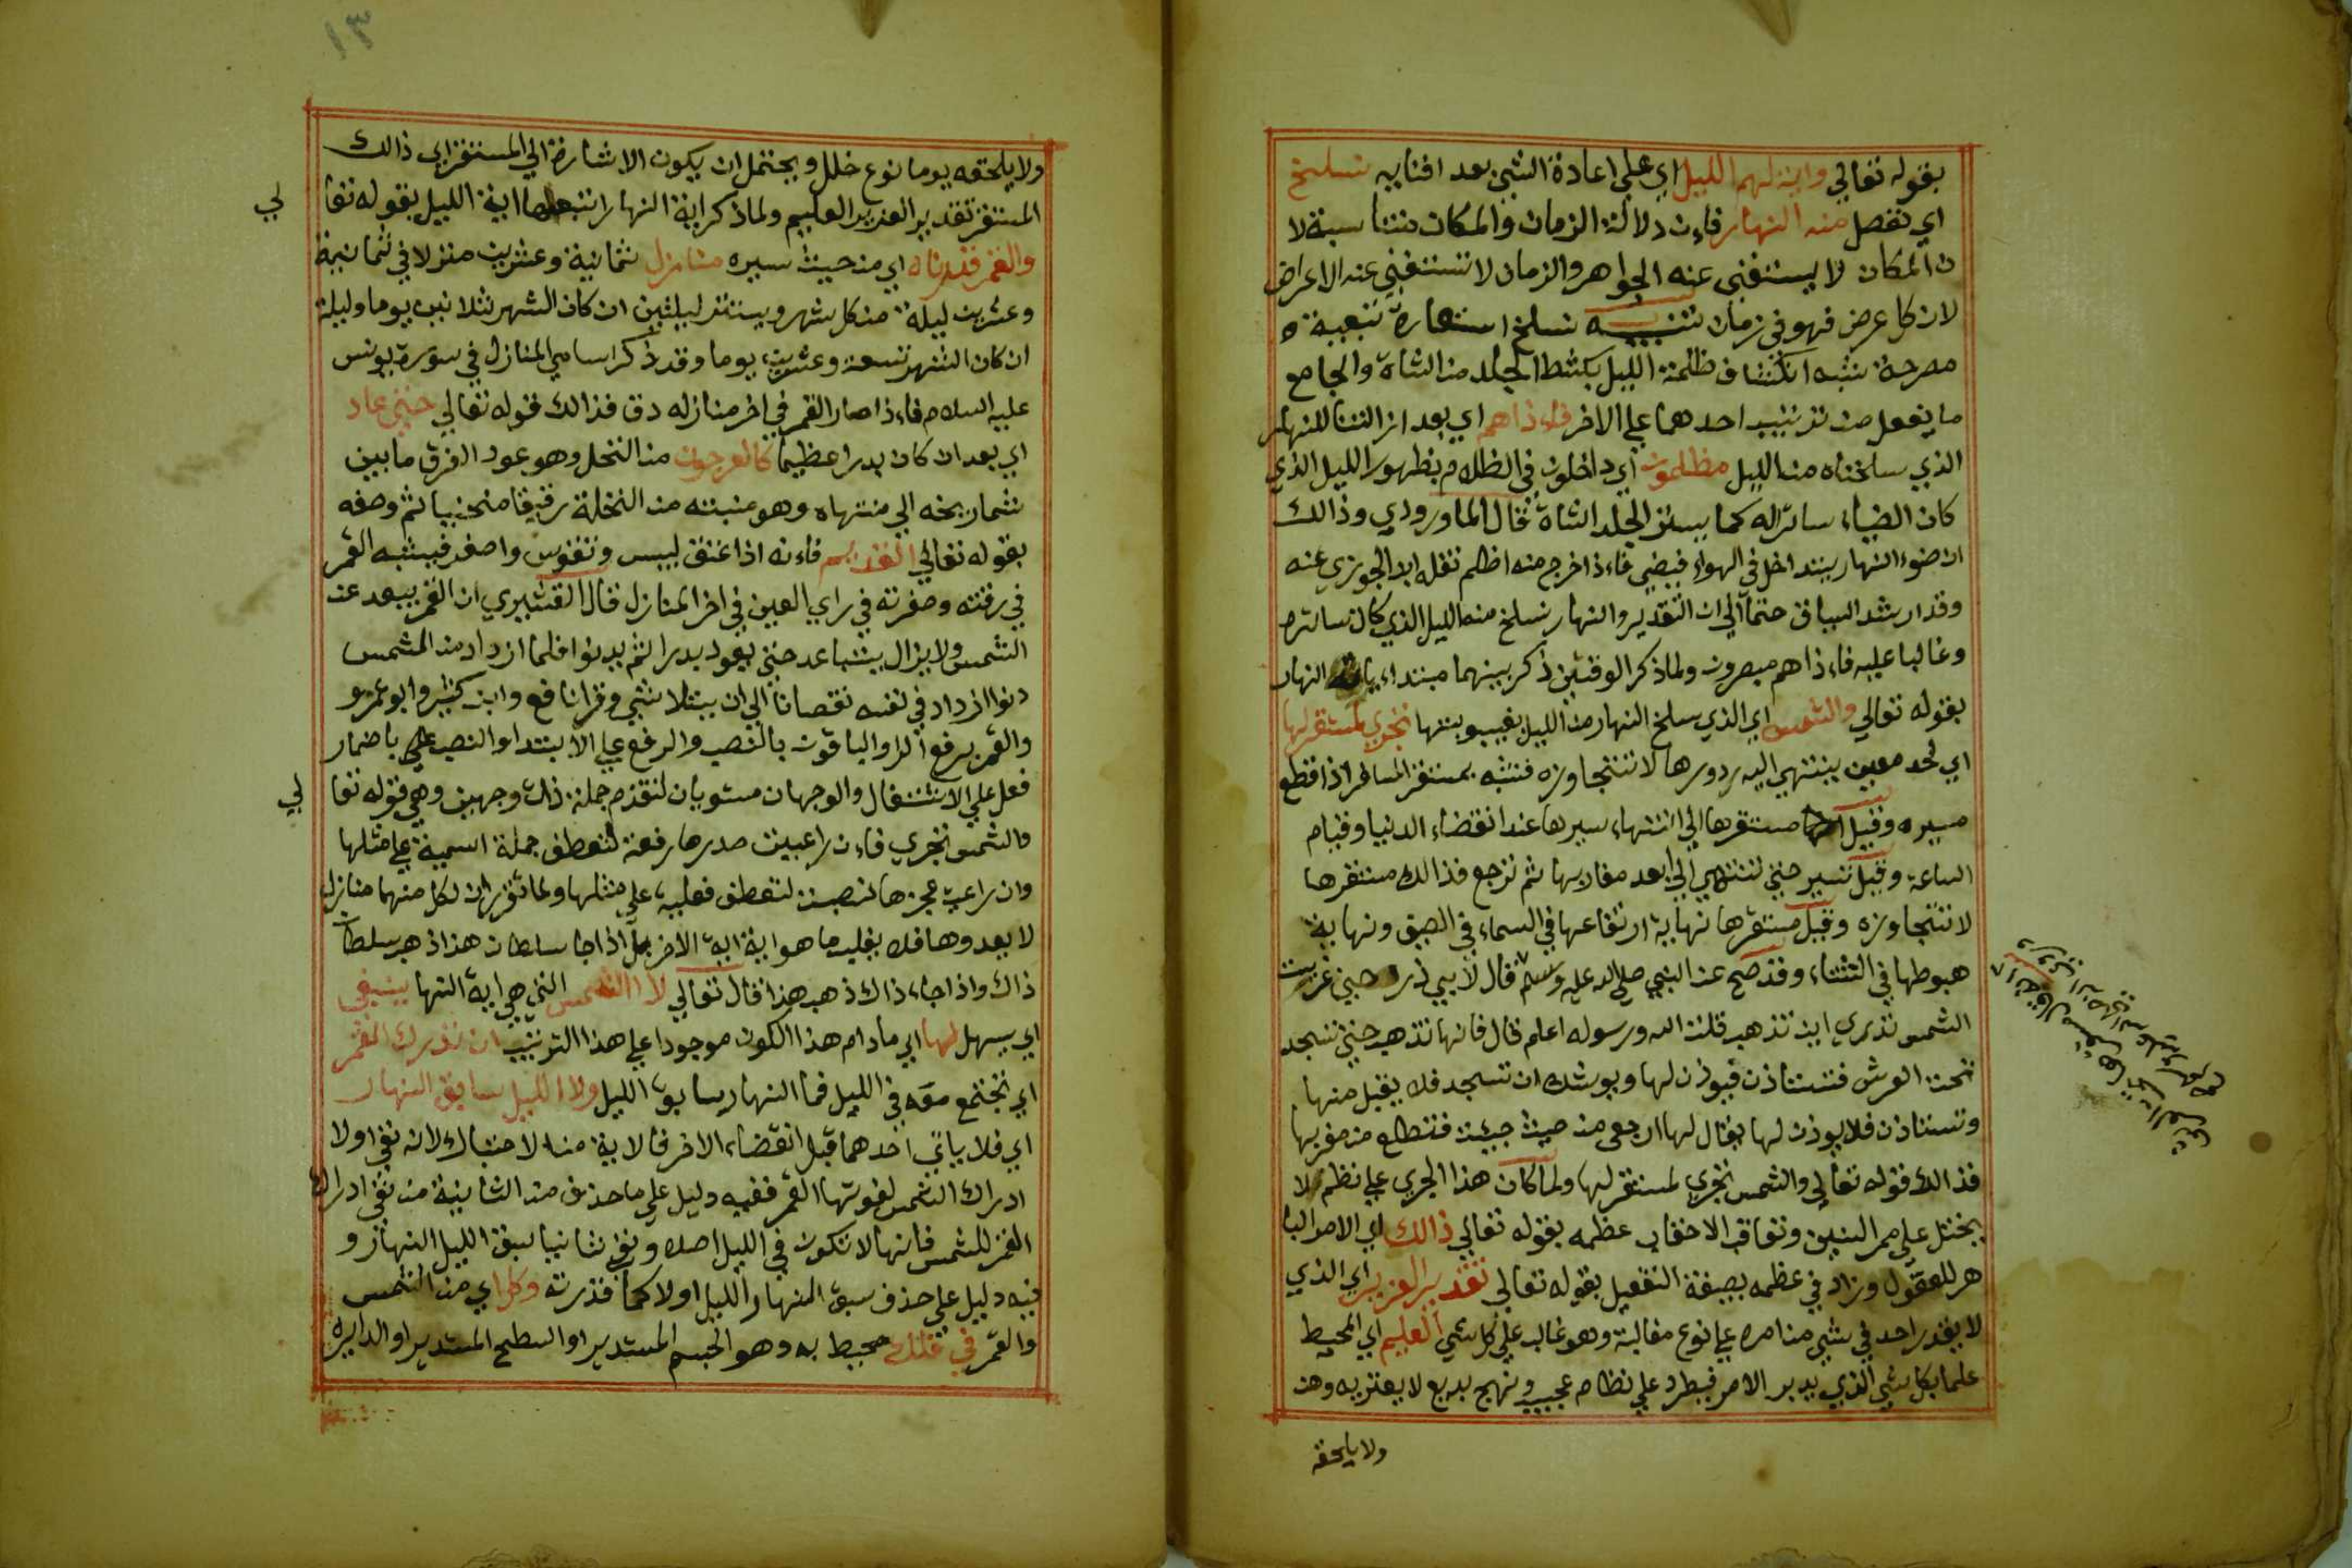 بقوله تعالي واية لهم الليل اي علي اعادة الشي بعد افنايه نسلخ
اي نفصل منه النهار فاءن دلالة الزمان والمكان متناسبة لا
ن المكان لا يستغني عنه الجواهر والزمان لا تستغني عنه الاعراض
لان كل عرض فهو في زمان تنبيه نسلخ استعارة تبعية
مصرحة شبه انكشاف ظلمة الليل بكشط الجلد من الشاة والجامع
ما يعقل من ترتيب احدهما علي الاخر فاءذاهم اي بعد ازالتنا للنهار
الذي سلخناه من الليل مظلمون اي داخلون في الظلام بظهور الليل الذي
كان الضياء ساتراله كما يستر الجلد الشاة قال الماوردي وذالك
ان ضوء النهار يتداخل في الهواء فيضي فاءذا خرج منه اظلم نقله ابن الجوزي عنه
وقد ارشد السياق حتما الي ان التقدير والنهار نسلخ منه الليل الذي كان ساتره
وغالبا عليه فاءذا هم مبصرون ولما ذكر الوقتين ذكر بينهما مبتداء باية النهار
بقوله تعالي والشمس اي الذي سلخ النهار من الليل بغيبوبتها تجري لمستقر لها
اي لحد معين ينتهي اليه دورها لا تتجاوزه فشبه بمستقر المسافر اذا قطع
مسيره وقيل مستقرها الي انتهاء سيرها عند انقضاء الدنيا وقيام
الساعة وقيل تسير حتي تنتهي الي ابعد مغاربها ثم ترجع فذالك مستقرها
لا تتجاوزه وقيل مستقرها نهاية ارتفاعها في السماء في الصيف ونهاية
هبوطها في الشتاء وقد صح عن النبي صلي الله عليه وسلم قال لابي ذر حين غربت
الشمس تدري اين تذهب قلت الله ورسوله اعلم قال فانها تذهب حتي تسجد
تحت العرش فتستاذن فيوذن لها ويوشك ان تسجد فلا يقبل منها
وتستاذن فلا يوذن لها يقال لها ارجعي من حيث جيت فتطلع من مغربها
فذالك قوله تعالي والشمس تجري لمستقر لها ولما كان هذا الجري علي نظم لا
يختل علي ممر السنين وتعاقب الاحقاب عظمه بقوله تعالي ذالك اي الامر البا
هر للعقول وزاد في عظمه بصيغة التفعيل بقوله تعالي تقدير العزيز اي الذي
لا يقدر احد في شي من امره علي نوع مغالبة وهو غالب علي كل شي العليم اي المحيط
علما بكل شي الذي يدبر الامر فيطرد علي نظام عجيب ونهج بديع لا يعتريه وهن
ولا يلحقه
ولا يلحقه يوما نوع خلل ويحتمل ان يكون الاشارة الي المستقر اي ذالك
المستقر تقدير العزيز العليم ولما ذكر اية النهار اتبعها اية الليل بقوله تعا
لي
والقمر قدرناه اي من حيث سيره منازل ثمانية وعشرين منزلا في ثمانية
وعشرين ليلة من كل شهر ويستتر ليلتين ان كان الشهر ثلاثين يوما وليلة
ان كان الشهر تسعة وعشرين يوما وقد ذكر اسامي المنازل في سورة يونس
عليه السلام فاءذا صار القمر في اخر منازله دق فذالك قوله تعالي حتي عاد
اي بعد ان كان بدرا عظيما كالعرجون من النخل وهو عود الفرق مابين
شماريخه الي منتهاه وهو منبته من النخلة رقيقا منحنيا ثم وصفه
بقوله تعالي القديم فاءنه اذا عتق يبس وتقوس واصفر فيشبه القمر
في رقته وصفرته في راي العين في اخر المنازل قال القشيري ان القمر يبعد عن
الشمس ولا يزال يتباعد حتي يعود بدرا ثم يدنوا فلما ازداد من الشمس
دنوا ازداد في نفسه نقصانا الي ان يتلاشي وقرا نافع وابن كثير وابو عمرو
والقمر برفع الرا والباقون بالنصب والرفع علي الابتدا والنصب علي باضمار
فعل علي الاشتغال والوجهان مستويان لتقدم جملة ذات وجهين وهي قوله تعا
لي
والشمس تجري فاءن راعيت صدرها رفعت لتعطف جملة اسمية علي مثلها
وان راعيت عجزها نصبت لتعطف فعلية علي مثلها ولما تقرر ان لكل منهما منازل
لا يعدوها فلا يغلب ما هو اية اية الاخر بل اذا جا سلطان هذا ذهب سلطان
ذاك واذا جاء ذاك ذهب هذا قال تعالي لا الشمس التي هي اية النها ينبغي
اي يسهل لها اي مادام هذا الكون موجودا علي هذا الترتيب ان تدرك القمر
اي تجتمع معه في الليل فما النهار سابق الليل ولا الليل سابق النهار
اي فلا ياتي احدهما قبل انقضاء الاخر فالاية من الاحتباك لانه نفي اولا
ادراك الشمس لقوتها القمر ففيه دليل علي ما حذف من الثانية من نفي ادراك
القمر للشمس فانها لا تكون في الليل اصلا ونفي ثانيا سبق الليل النهار و
فيه دليل علي حذف سبق النهار الليل اولا كما قدرته وكل اي من الشمس
والقمر في فلك محيط به وهو الجسم المستدير او السطح المستدير او الدايرة